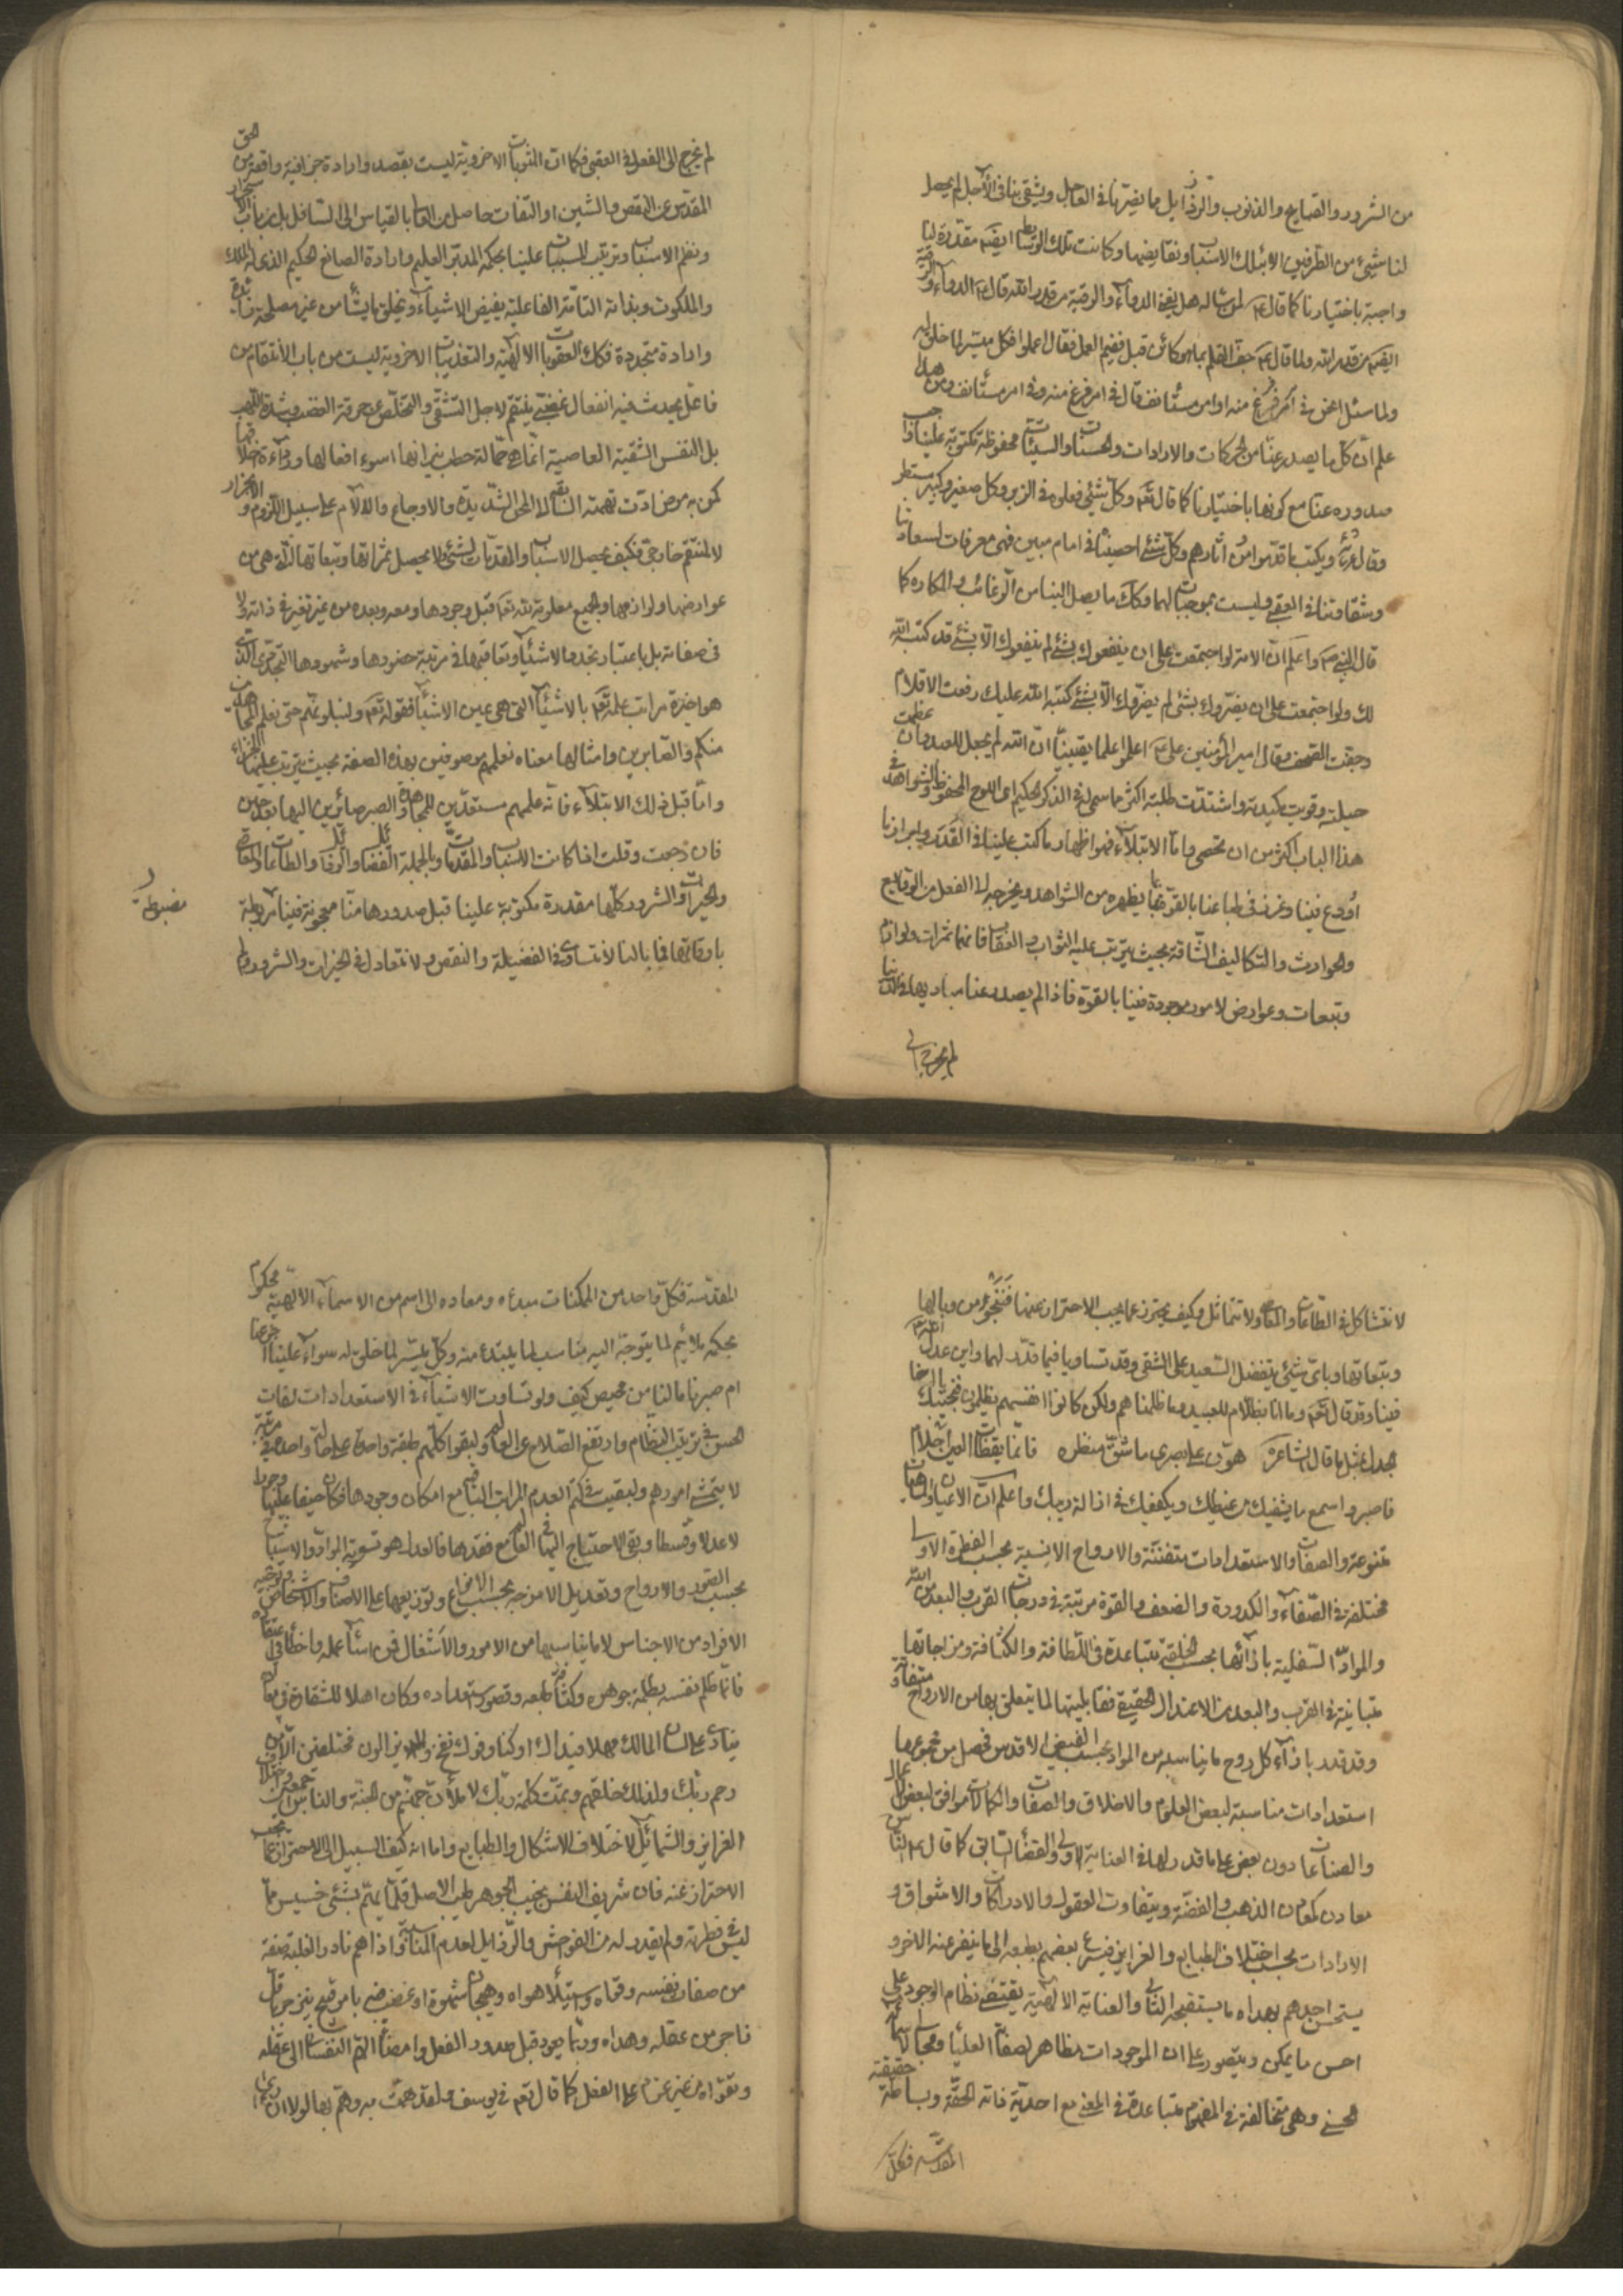 من الشرور والقبايح والذنوب والرذايل مما يضرنا في العاجل ويشقى بنا في الآجل لم يحصل
لنا شيئ من الطرفين الا بتلك الاسباب ونقايضها وكانت تلك الوسايط ايضا مقدرة لنا
واجبة باختيارنا كما قال ع لمن ساله هل يغني الدواء والرقية من قدر الله قال ع الدواء والرقية
ايضا من قدر الله ولما قال ع جف القلم بما هو كائن قيل ففيم العمل فقال اعملوا فكل ميسر لما خلق له
ولما سئل انحن في امر فرغ منه او امر مستأنف قال في امر فرغ منه وفي امر مستأنف ومن هنا
علم ان كل ما يصدر عنا من الحركات والارادات والحسنات والسيئات محفوظة مكتوبة علينا واجب
صدوره عنا مع كونها باختيارنا كما قال تعه وكل شيئ فعلوه في الزبر وكل صغير وكبير مستطر
وقال ونكتب ما قدموا واثارهم وكل شئ احصيناه في امام مبين فهي معرفات لسعادتنا
وشقاوتنا في العقبى وليست بموجبات لهما وكك ما يصل الينا من الرغائب والمكاره كما
قال النبي ص واعلم ان الامة لو اجتمعت على ان ينفعوك بشئ لم ينفعوك الا بشئ قد كتبه الله
لك ولو اجتمعت على ان يضروك بشئ لم يضروك الا بشئ كتبه الله عليك رفعت الاقلام
وجفت الصحف وقال امير المؤمنين على ع اعلموا علما يقينيا ان الله لم يجعل للعبد وان عظمت
حيلته وقويت مكيدته واشتدت طلبته اكثر مما سمى له في الذكر الحكيم اى اللوح المحفوظ والشواهد في
هذا الباب اكثر من ان تحصى واما الابتلاء فهو اظهار ما كتب علينا في القدر وابراز ما
اودع فينا وغرز في طباعنا بالقوة بما يظهره من الشواهد ويخرجه الى الفعل من الوقايع
والحوادث والتكاليف الشاقة بحيث يترتب عليه الثواب والعقاب فانهما ثمرات ولوازم
وتبعات وعوارض لامور موجودة فينا بالقوة فاذا لم يصدر عنا مباديها في الدنيا
لم يخرج الى
لم يخرج الى الفعل في العقبى فكما ان المثوبات الاخروية ليست بقصد وارادة جزافية واقعة من الحق
المقدس عن النقص والشين او التفات حاصل من العالى بالقياس الى السافل بل من باب
ونظم الاسباب وترتيب المسببات علينا بحكمة المدبر العليم وارادة الصانع الحكيم الذى له الملك
والملكوت وبذاته التامة الفاعلية يفيض الاشياء ويخلق ما يشأ من غير مصلحة
وارادة متجددة فكك العقوبات الالهية والتعذيبات الاخروية ليست من باب الانتقام من
فاعل يحدث فيه انفعال غضبى ينتقم لاجل التشفى والتخلص عن حرقة الغضب وشدة اللهب
بل النفس الشقية العاصية انما هى حمالة حطب نيرانها اسوء افعالها ورداءة اخلاقها
كمن به مرض ادت نهمته السابقة الى المحن الشديدة والاوجاع والالام على سبيل اللزوم والانجرار
لا لمنتقم خارجى فكيف يحصل الاسباب والمقدمات لشئ ولا يحصل ثمراتها وتبعاتها التى هى من
عوارضها ولوازمها والجميع معلومة لله تعه قبل وجودها ومعه وبعده من غير تغير في ذاته ولا
في صفاته بل باعتبار تجدد الاشياء وتعاقبها في مرتبة حضورها وشهودها التجددى الذى
هو اخيرة مراتب علمه تعه بالاشياء التى هى عين الاشياء فقوله تعه ولنبلونكم حتى نعلم المجاهدين
منكم والصابرين وامثالها معناه نعلمهم موصوفين بهذه الصفة بحيث يترتب عليها الجزاء
واما قبل ذلك الابتلاء فانه علمهم مستعدين للمجاهدة والصبر صائرين اليها بعد حين
فان رجعت وقلت اذا كانت الاسباب والمقدمات وبالجملة الفضايل والرذايل والطاعات والمعاصى
والخيرات والشرور كلها مقدرة مكتوبة علينا قبل صدورها منا معجونة فينا مربوطة
باوقاتها فما بالنا لا نتساوى في الفضيلة والنقص ولا نتعادل في الخيرات والشرور ولم
مضبوطة
لا نتشاكل في الطاعات والمعاصى ولا نتماثل وكيف نحترز عما يجب الاحتراز عنها فننجو من وبالها
وتبعاتها وباى شيئ يتفضل السعيد على الشقى وقد تساويا فيما قدر لهما واين عدل الله
فينا وقد قال تعه وما انا بظلام للعبيد وما ظلمناهم ولكن كانوا انفسهم يظلمون فنجيبك
بمثل ما قال الشاعر هون على بصرى ما شق منظره فانما يقظات العين احلام
فاصبر واسمع ما يشفيك من غيظك ويكفيك في ازالة ريبك واعلم ان الاعيان والماهيات
متنوعة والصفات والاستعدادات متفننة والارواح الانسية بحسب الفطرة الاولى
مختلفة في الصفاء والكدورة والضعف والقوة مرتبة في درجات القرب والبعد من الله
والمواد السفلية بازائها بحسب الخلقة متباعدة في اللطافة والكثافة ومزاجاتها
متباينة في القرب والبعد من الاعتدال الحقيقى فقابليتها لما يتعلق بها من الارواح متفاوتة
وقد قدر بازاء كل روح ما يناسبه من المواد بحسب الفيض الاقدس فحصل من مجموعها
استعدادات مناسبة لبعض العلوم والاخلاق والصفات والكمالات موافق لبعض الاعمال
والصناعات دون بعض على ما قدر لها في العناية الاولى والقضاء السابق كما قال ع الناس
معادن كمعادن الذهب والفضة ويتفاوت العقول والادراكات والاشواق و
الارادات بحسب اختلاف الطبايع والغرايز فينزع بعضهم بطبعه الى ما ينفر عنه الاخر و
يستحسن احدهم بهداه ما يستقبحه الثانى والعناية الالهية يقتضى نظام الوجود على
احسن ما يمكن ويتصور على ان الموجودات مظاهر لصفاته العليا ومجالى لاسمائه
الحسنى وهى متخالفة في المفهوم متباعدة في المعنى مع احدية ذاته الحقة وبساطة حقيقته
المقدسة فكل
المقدسة فكل واحد من الممكنات مبدءه ومعاده الى اسم من الاسماء الالهية محكوم
بحكمه ملائم لما يتوجه اليه مناسب لما يبتدء منه وكل ميسر لما خلق له سواء علينا اجزعنا
ام صبرنا ما لنا من محيص كيف ولو تساوت الاشياء في الاستعدادات لفات
الحسن في ترتيب النظام وارتفع الصلاح عن العالم ولبقوا كلهم طبقة واحدة على حالة واحدة في مرتبة
لا يتمشى امورهم ولبقيت في كتم العدم المراتب الباقية مع امكان وجودها فكان حيفا عليها وجورا
لا عدلا وقسطا وبقى الاحتياج اليها في العالم مع فقدها فالعدل هو تسوية المواد والاسباب
بحسب الصور والارواح وتعديل الامزجة بحسب الانواع وتوزيعها على الاصناف والاشخاص وتوجيه
الافراد من الاجناس لا ما يناسبها من الامور والاشغال فمن اساء عمله واخطأ في اعتقاده
فانما ظلم نفسه بظلمة جوهره وكثافة طبعه وقصور استعداده وكان اهلا للشقاوة في معاده
ينادى على لسان المالك مهلا فيداك اوكتا وفوك نفخ ولا يزالون مختلفين الا من
رحم ربك ولذلك خلقهم وتمت كلمة ربك لاملأن جهنم من الجنة والناس اجمعين
الغرايز والشمائل لاختلاف الاشكال والطبايع واما انه كيف السبيل الى الاحتراز عما يجب
الاحتراز عنه فان شريف النفس نجيب الجوهر طيب الاصل قلما يهتم بشئ خسيس ما
ليس في فطرته ولم يقدر له من الفواحش والرذايل لعدم المناسبة واذا هم نادرا لغلبة صفة
من صفات نفسه وقواه واستيلاء هواه وهيجان شهوة او غضب فيه بامر قبيح ينزجر باقل
زاجر من عقله وهداه وربما يعود قبل صدور الفعل وامضاء الهم النفسانى الى عقله
وتقواه من غير عزم على الفعل كما قال تعه في يوسف ولقد همت به وهم بها لولا ان رأى